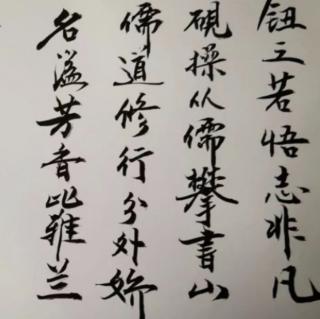 钮三若悟志非凡
砚操从儒攀书山
儒道修行分外娇
名溢芳香比雅兰